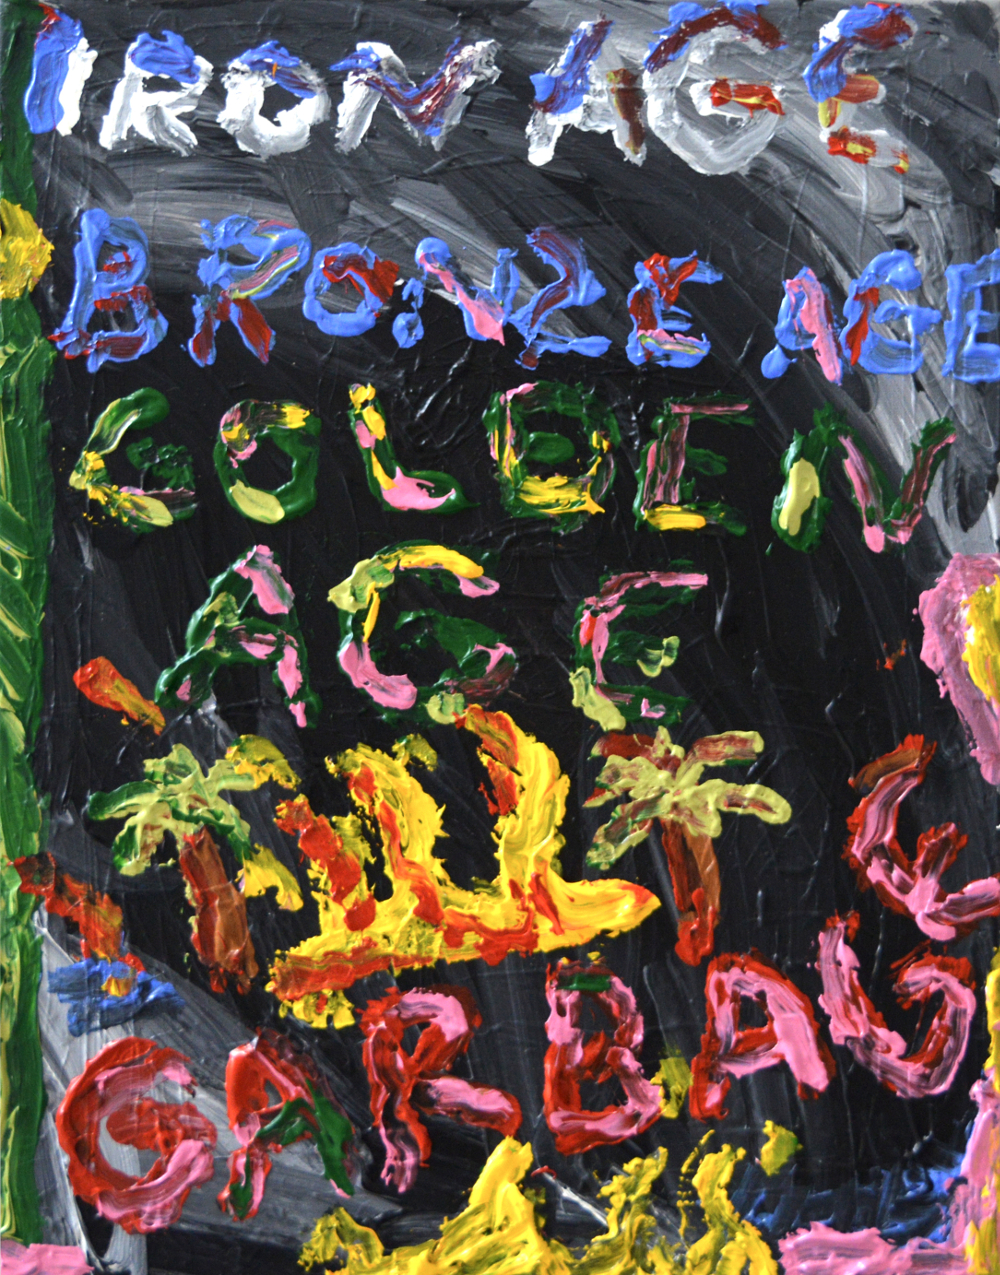 IRON AGE
BRONZE AGE
GOLDEN
AGE
GARBAGE